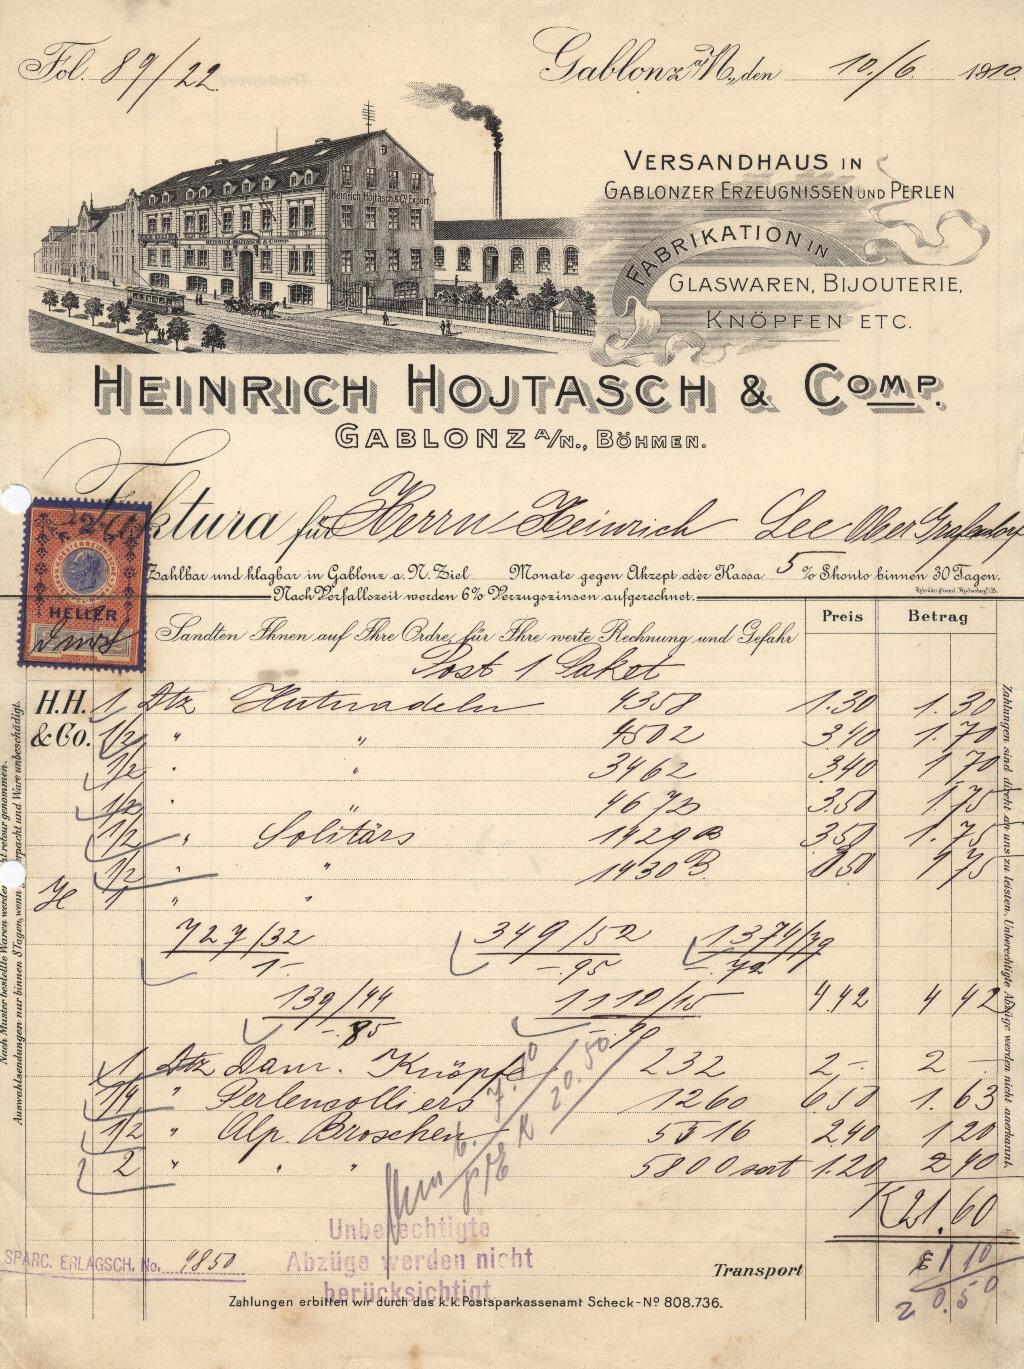 Fol. 89/22.
Gablonz a/N., den 10./6 1910.
VERSANDHAUS IN
GABLONZER ERZEUGNISSEN UND PERLEN
FABRIKATION IN
GLASWAREN, BIJOUTERIE,
KNÖPFEN ETC.
Heinrich Hojtasch & Co. Export
HEINRICH HOJTASCH & COMP.
HEINRICH HOJTASCH & COMP.
GABLONZ A/N., BÖHMEN.
Faktura für Herrn Heinrich Lee Ober Grafendorf
2
HELLER
Zahlbar und klagbar in Gablonz a. N. Ziel Monate gegen Akzept oder Kassa 5 % Skonto binnen 30 Tagen.
Nach Verfallszeit werden 6% Verzugszinsen aufgerechnet.
Sandten Ihnen auf Ihre Ordre, für Ihre werte Rechnung und Gefahr Preis Betrag
Post 1 Paket
H.H. 1 Dtz Hutnadeln 4358 1.30 1.30
& Co. 1/2 " " 4502 3.40 1.70
1/2 " " 3462 3.40 1 70
1/2 " 4672 3.50 1.75
1/2 " Solitärs 1429 B 3.50 1.75
1/2 " " 1430 B 3 50 1 75
1 " "
727/32 349/52 1374/79
1.- -.95 -.72
139/44 1110/15 4 42 4 42
-.85 -.90
1 Dtz Dam. Knöpfe 232 2.- 2 -
1/4 " Perlencolliers 1260 6 50 1.63
1/2 " Alp. Broschen 5516 2.40 1 20
2 " " " 5800 sort 1.20 2 40
K 21.60
1 10
20.50
7.10
K 20.50
Unberechtigte
Abzüge werden nicht
berücksichtigt.
SPARC. ERLAGSCH. No. 9850
Transport
Zahlungen erbitten wir durch das k.k. Postsparkassenamt Scheck-Nº 808.736.
Auswahlsendungen nur binnen 8 Tagen, wenn verpackt und Ware unbeschädigt.
Nach Muster bestellte Waren werden nicht retour genommen.
Zahlungen sind direkt an uns zu leisten. Unberechtigte Abzüge werden nicht anerkannt.